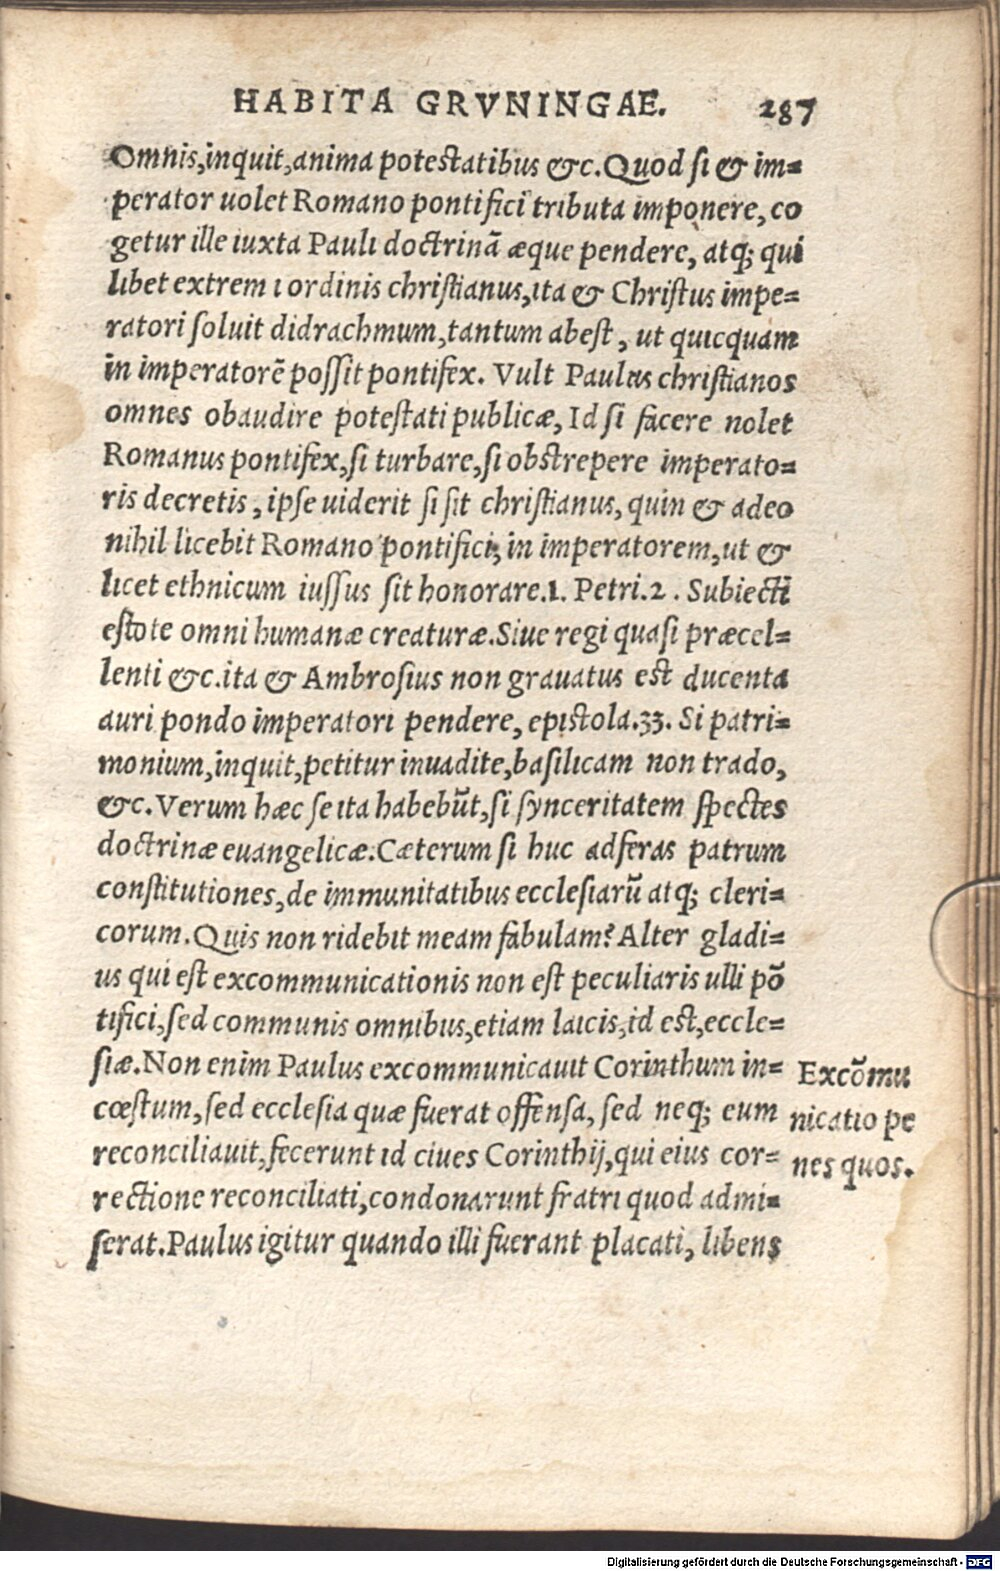 HABITA GRVNINGAE. 287
Omnis,inquit,anima potestatibus &c.Quod si & im=
perator uolet Romano pontifici tributa imponere, co
getur ille iuxta Pauli doctrinã æque pendere, atq; qui
libet extremi ordinis christianus,ita & Christus impe=
ratori soluit didrachmum,tantum abest, ut quicquam
in imperatorẽ possit pontifex. Vult Paulus christianos
omnes obaudire potestati publicæ, Id si facere nolet
Romanus pontifex,si turbare,si obstrepere imperato=
ris decretis, ipse uiderit si sit christianus, quin & adeo
nihil licebit Romano pontifici, in imperatorem,ut &
licet ethnicum iussus sit honorare.1. Petri.2. Subiecti
estote omni humanæ creaturæ.Siue regi quasi præcel=
lenti &c.ita & Ambrosius non grauatus est ducenta
auri pondo imperatori pendere, epistola.33. Si patri=
monium,inquit,petitur inuadite,basilicam non trado,
&c.Verum hæc se ita habebũt,si synceritatem spectes
doctrinæ euangelicæ.Cæterum si huc adferas patrum
constitutiones,de immunitatibus ecclesiarũ atq; cleri=
corum.Quis non ridebit meam fabulam? Alter gladi=
us qui est excommunicationis non est peculiaris ulli põ
tifici,sed communis omnibus,etiam laicis,id est,eccle=
siæ.Non enim Paulus excommunicauit Corinthum in=
cœstum,sed ecclesia quæ fuerat offensa, sed neq; eum
reconciliauit,fecerunt id ciues Corinthij,qui eius cor=
rectione reconciliati,condonarunt fratri quod admi=
serat.Paulus igitur quando illi fuerant placati, libens
Excõmu
nicatio pe
nes quos.
Digitalisierung gefördert durch die Deutsche Forschungsgemeinschaft - DFG